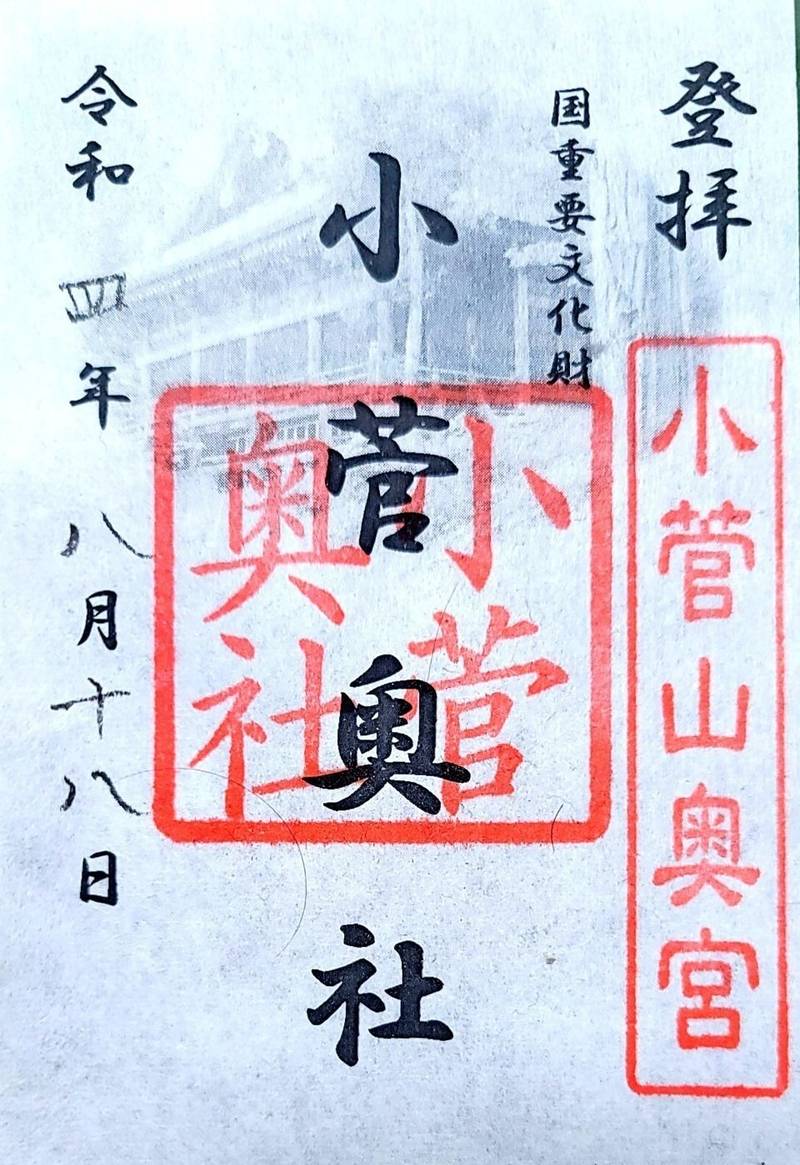 登拝
小菅山奥宮
国重要文化財
小菅奥社
小菅
奥社
令和四年八月十八日